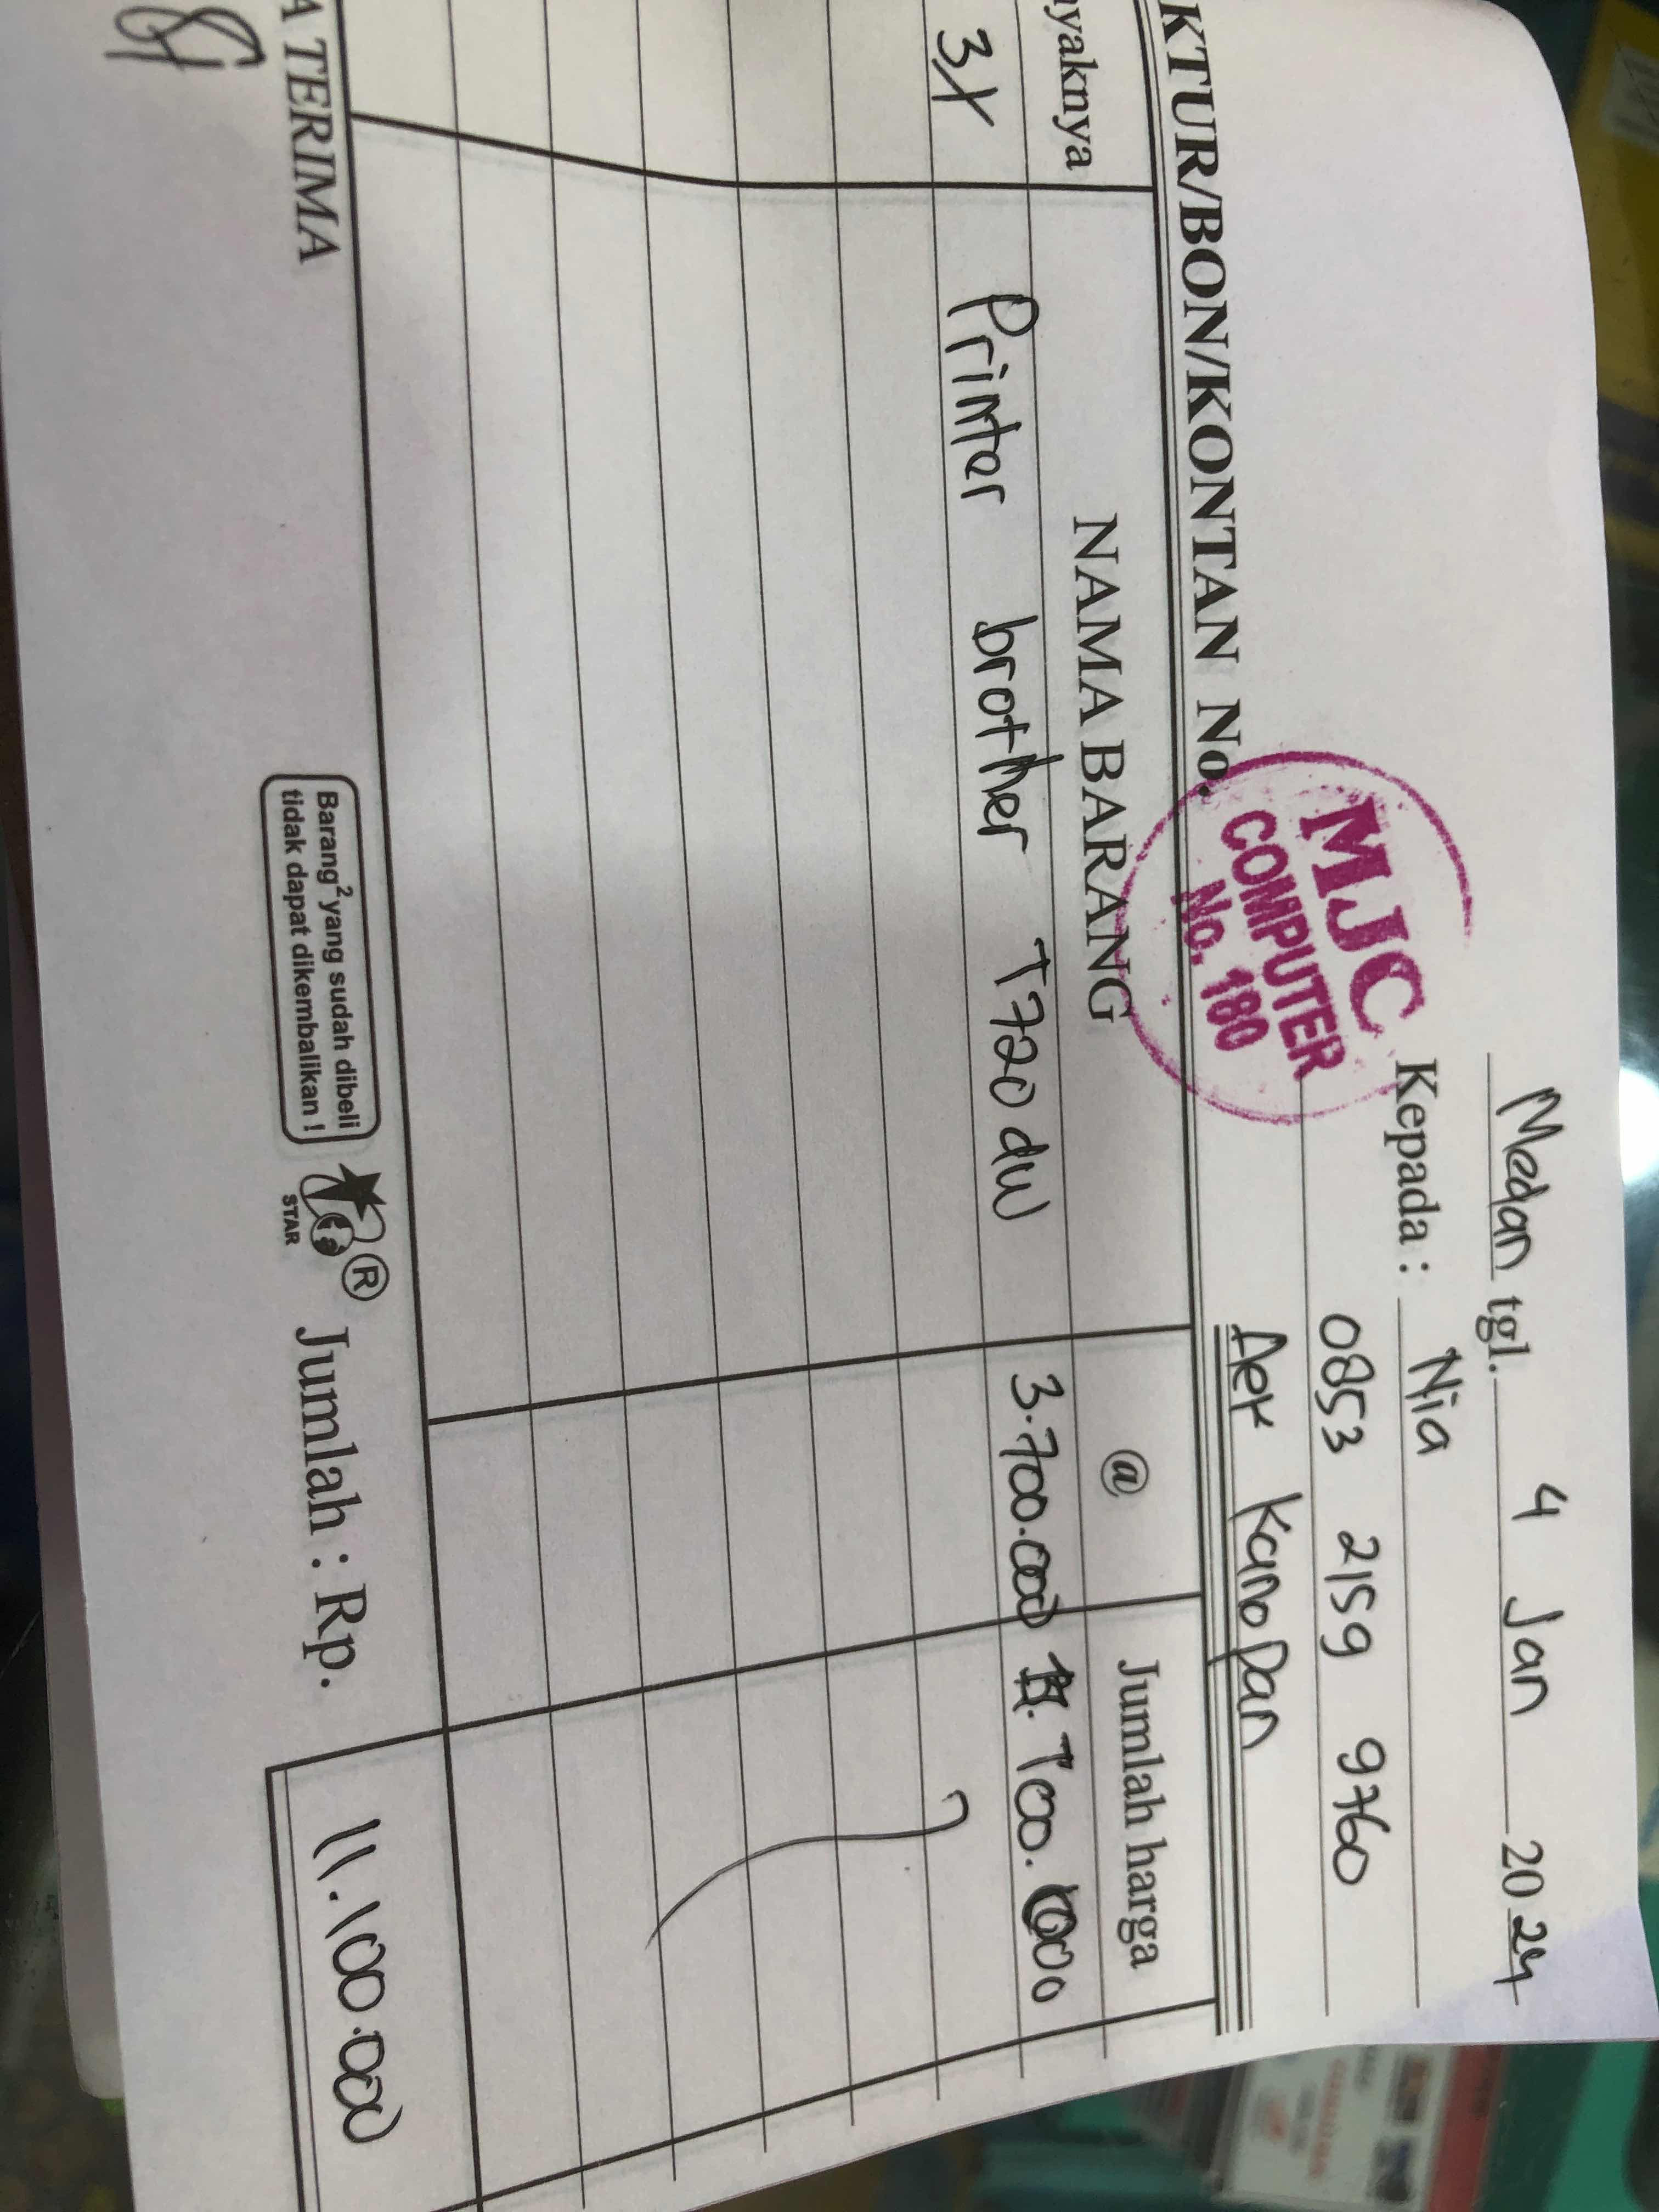 Medan tgl. 4 Jan 2024
Kepada : Nia
0853 2159 9760
Aek Kanopan
MJC
COMPUTER
No. 180
KTUR/BON/KONTAN No.
yaknya NAMA BARANG @ Jumlah harga
3x Printer brother T720 dw 3.700.000 11.100.000
A TERIMA
Barang² yang sudah dibeli
tidak dapat dikembalikan !
STAR
®
Jumlah : Rp. 11.100.000